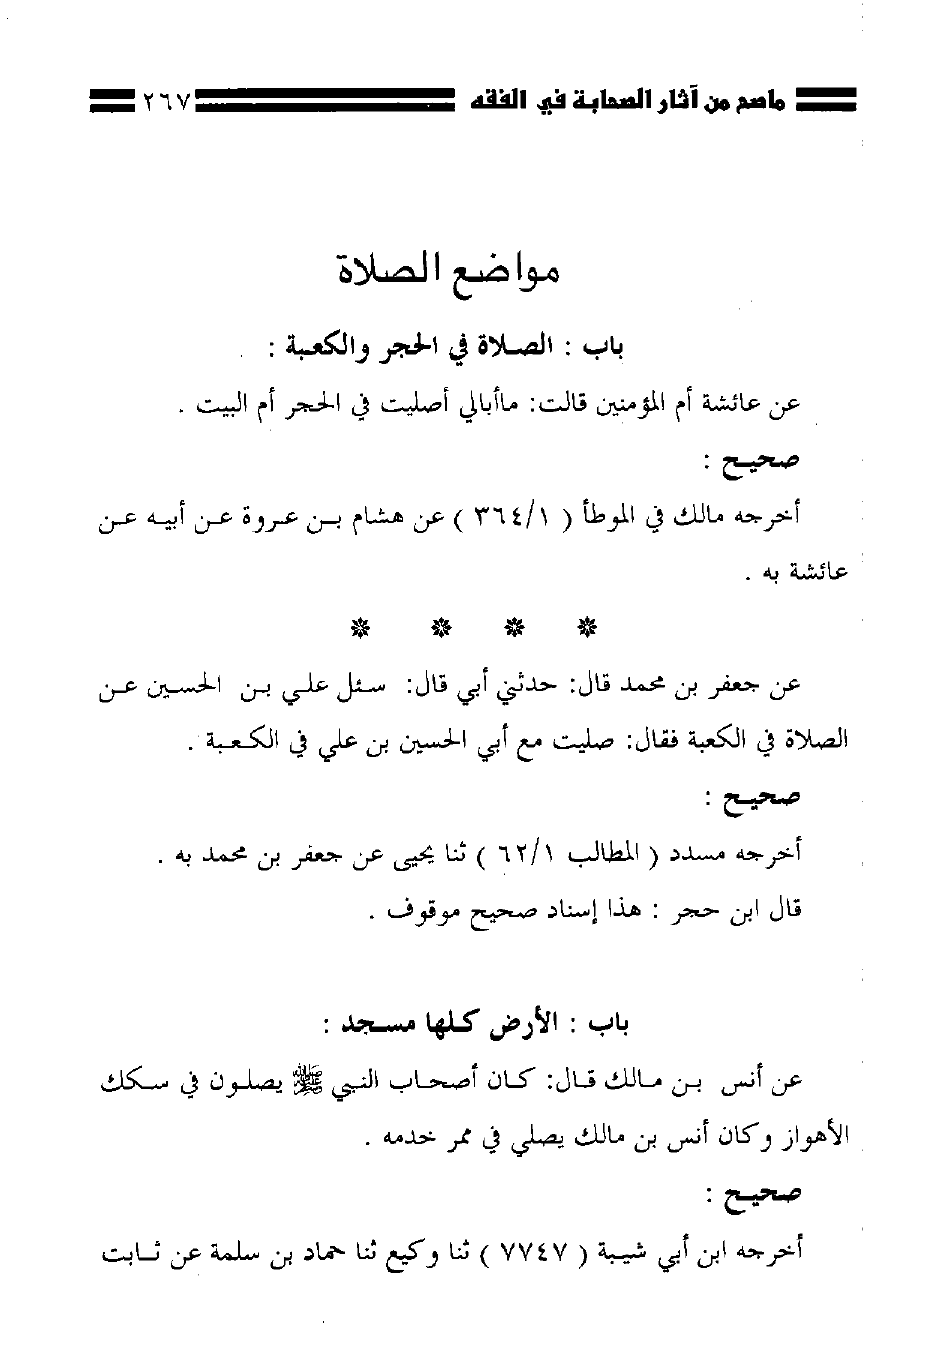 ماصح من آثار الصحابة في الفقه ٢٦٧
مواضع الصلاة
باب : الصلاة في الحجر والكعبة :
عن عائشة أم المؤمنين قالت: ماأبالي أصليت في الحجر أم البيت .
صحيح :
أخرجه مالك في الموطأ ( ٣٦٤/١ ) عن هشام بن عروة عن أبيه عن
عائشة به .
* * * *
عن جعفر بن محمد قال: حدثني أبي قال: سئل علي بن الحسين عن
الصلاة في الكعبة فقال: صليت مع أبي الحسين بن علي في الكعبة .
صحيح :
أخرجه مسدد ( المطالب ٦٢/١ ) ثنا يحيى عن جعفر بن محمد به .
قال ابن حجر : هذا إسناد صحيح موقوف .
باب : الأرض كلها مسجد :
عن أنس بن مالك قال: كان أصحاب النبي ﷺ يصلون في سكك
الأهواز وكان أنس بن مالك يصلي في ممر خدمه .
صحيح :
أخرجه ابن أبي شيبة ( ٧٧٤٧ ) ثنا وكيع ثنا حماد بن سلمة عن ثابت